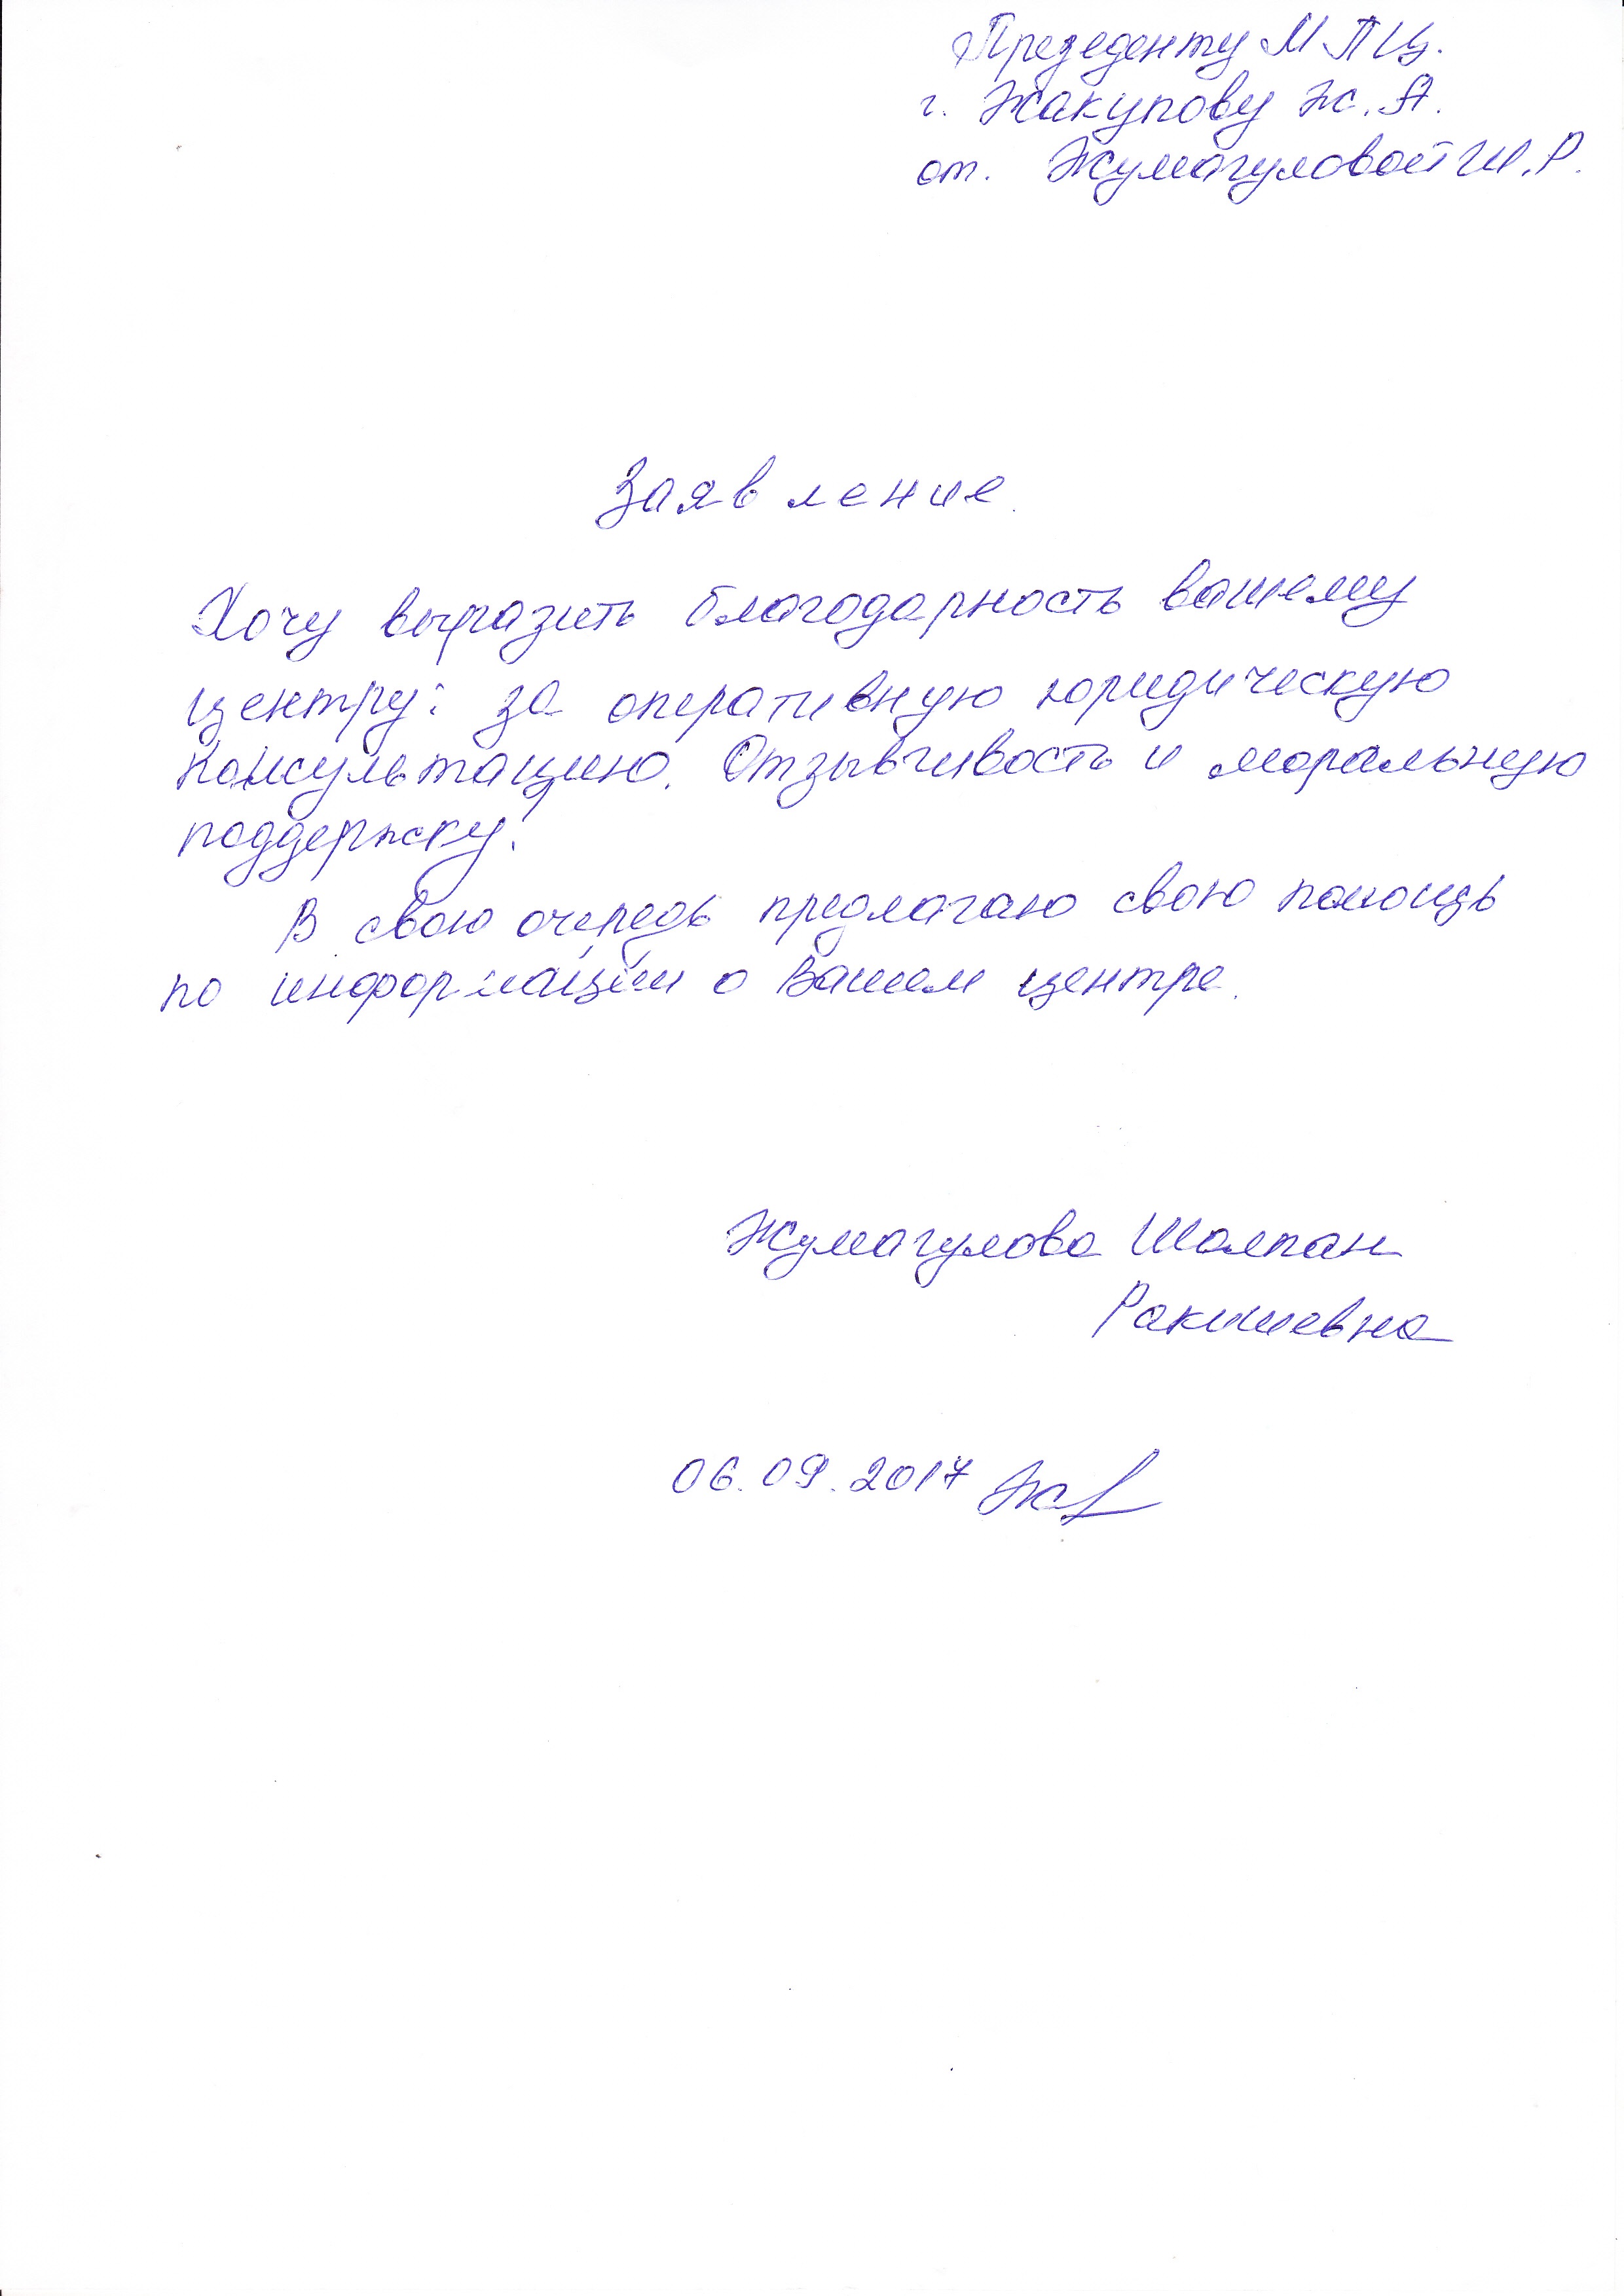 Презеденту МПЦ.
г. Жакупову Ж. А.
от. Жумагуловой Ш. Р.
Заявление.
Хочу выразить благодарность вашему
центру: за оперативную юридическую
консультацию. Отзывчивость и моральную
поддержку.
В свою очередь предлагаю свою помощь
по информации о Вашем центре.
Жумагулова Шолпан
Ракишевна
06.09.2017